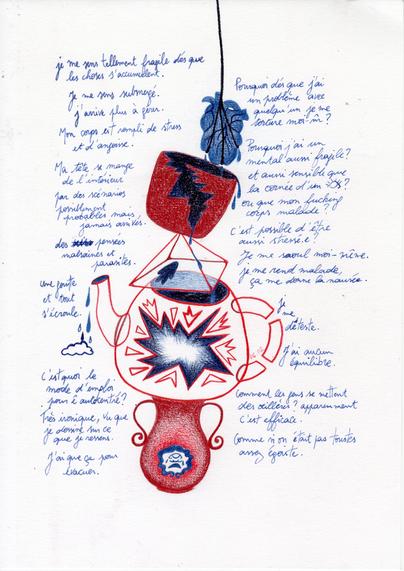 je me sens tellement fragile dès que
les choses s'accumulent.
Je me sens submergé.
j'arrive plus à gérer.
Mon corps est rempli de stress
et d'angoisse.
Ma tête se mange
de l'intérieur
par des scénarios
possiblement
probables mais
jamais arrivés.
des pensées
malsaines et
parasites.
une goutte
et tout
s'écroule.
C'est quoi le
mode d'emploi
pour s'autocentré?
Très ironique, vu que
je dessine sur ce
que je ressens.
J'ai que ça pour
évacuer.
Pourquoi dès que j'ai
un problème avec
quelqu'un je me
torture moi-m̂?
Pourquoi j'ai un
mental aussi fragile?
et aussi sensible que
la cornée d'un
ou que mon fucking
corps malade?
C'est possible d'être
aussi stressé.e?
Je me saoul moi-même.
je me rend malade,
ça me donne la nausée.
je
me
déteste.
J'ai aucun
équilibre.
Comment les gens se mettent
des œillères? apparemment
c'est efficace.
Comme si on était pas toustes
assez égoïste.